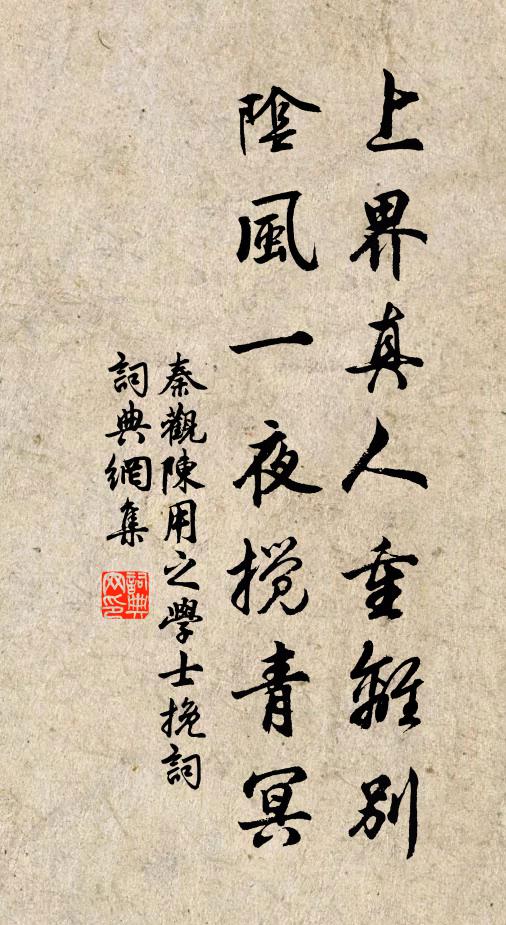 上界真人重離別
陰風一夜攪青冥
秦觀陳用之學士挽詞
詞典網集
詞典
网印